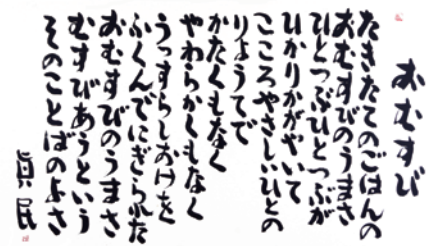 おむすび
たきたてのごはんの
おむすびのうまさ
ひとつぶひとつぶが
ひかりかがやいて
こころやさしいひとの
りょうてで
かたくもなく
やわらかくもなく
うっすらしおけを
ふくんでにぎられた
おむすびのうまさ
むすびあうという
そのことばのよさ
眞民